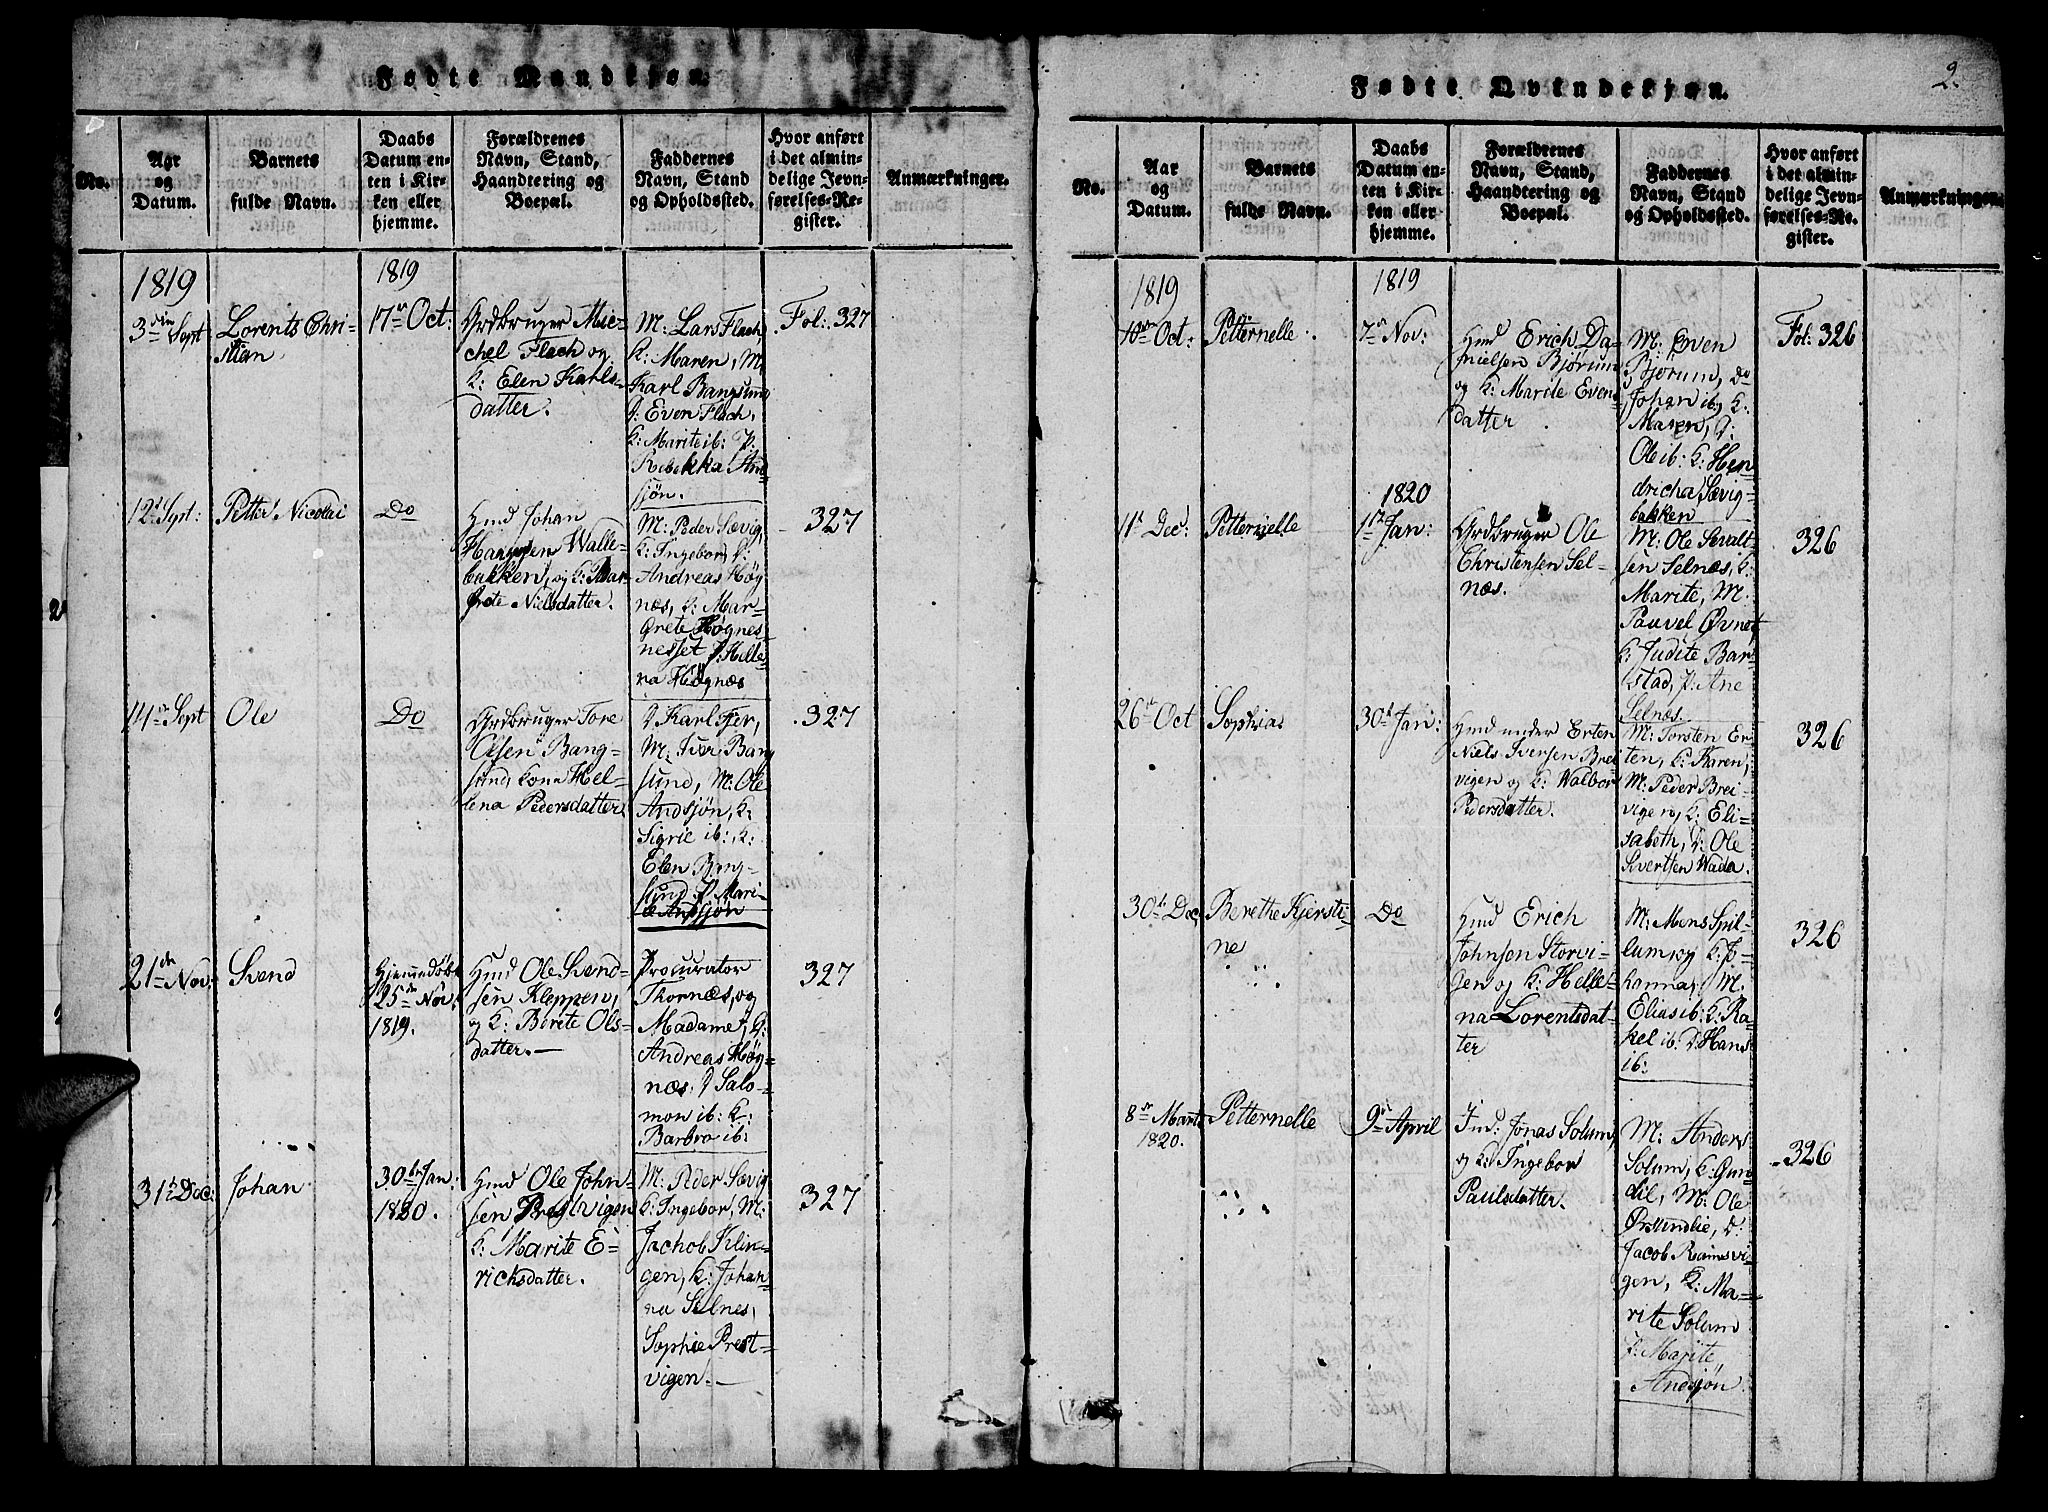 Fødte Mandkjøn.
No.
Aar
og
Datum.
Barnets
fulde Navn.
Daabs
Datum en-
ten i Kir-
ken eller
hjemme.
Forældrenes
Navn, Stand,
Haandtering og
Boepæl.
Faddernes
Navn, Stand
og Opholdssted.
Hvor anført
i det almin-
delige Jevn-
førelses-Re-
gister.
Anmærkninger.
1819
3 Sept
Lorents Chri-
stian
1819
17 Oct:
Jordbruger Mic-
chel Flach og
K: Elen Karls-
datter.
M: Lars Flach,
K: Maren, M:
Karl Bangsund
D: Even Flach,
K: Marite ib: P:
Rebekka And-
sjøn.
Fol: 327
12 Sept:
Petter Nicolai
Do
Hmd Johan
Hansen Walle-
bakken, og K: Mar-
grete Nielsdatter.
M: Peder Sævig,
K: Ingebor, D:
Andreas Høg
næs, K: Mar-
grete Høgnes-
nesset P: Helle-
na Høgnæs
327
14 Sept
Ole
Do
Jordbruger Tore
Olsen Bang-
sund, kona Hel-
lena Pedersdatter.
D: Karl Fjer,
M: Iver Bang
sund, M: Ole
Andsjøn, K:
Sigrie ib:, K:
Elen Bang-
sund, P: Mari-
e Andsjøn
327
21 Nov:
Svend
Hjemmedøbt
25 Nov:
1819.
Hmd Ole Svend-
sen Kleppen,
og K: Berite Ols-
datter.
Procurator
Thornæs, og
Madame, D:
Andreas Høg-
næs: D: Salo-
mon ib: K:
Barbro ib:
327
31 Dec:
Johan
30 Jan:
1820.
Hmd Ole John-
sen Prestvigen
K: Marite E-
ricksdatter.
M: Peder Sævig
K: Ingebor, M:
Jachob Klin-
gen, K: Johan-
na Selnes,
Sophie Prest-
vigen.
327
2.
Fødte Qvindekjøn.
No.
Aar
og
Datum.
Barnets
fulde Navn.
Daabs
Datum en-
ten i Kir-
ken eller
hjemme.
Forældrenes
Navn, Stand,
Haandtering og
Boepæl.
Faddernes
Navn, Stand
og Opholdssted.
Hvor anført
i det almin-
delige Jevn-
førelses-Re-
gister.
Anmærkninger.
1819
10 Oct:
Petternelle
1819
7 Nov:
Hmd Erich Da-
nielsen Bjørum
og K: Marite Evens-
datter
M: Even
Bjørum, Do
Johan ib, K:
Maren, D:
Ole ib: K: Hen
dricha Sævig-
bakken
Fol: 326
11 Dec:
Petternelle
1820
1 Jan:
Jordbruger Ole
Christensen Sel-
næs.
M: Ole Sevalt-
sen Selnæs, K:
Marite, M:
Pauvel Øvnet
K: Judite Bar-
stad, P: Ane
Selnæs.
326
26 Oct
Sophia
30 Jan:
Hmd under Erten
Niels Iversen Brei
vigen og K: Walbor
Pedersdatter.
M: Torsten Er
ten, K: Karen,
M: Peder Brei-
vigen, K: Eli-
sabeth, D: Ole
Sivertsen Wada.
326
30 Dec
Berethe Kjersti-
ne
Do
Hmd Erich
Johnsen Storvi-
gen og K: Helle-
na Lorentsdat-
ter
M: Mons Spil-
lum og K: Jo-
hanna, M:
Elias ib: K: Ra-
kel ib: D: Hans
ib:
326
8 Marts
1820.
Petternelle
9 April
Ind: Jonas Solum,
og K: Ingebor
Paulsdatter.
M: Anders
Solum, K: Gun-
dil, M: Ole
Ørsundlie, D:
Jacob Ramsvi-
gen, K: Ma-
rite Solum
P: Marite,
Andsjøn.
326